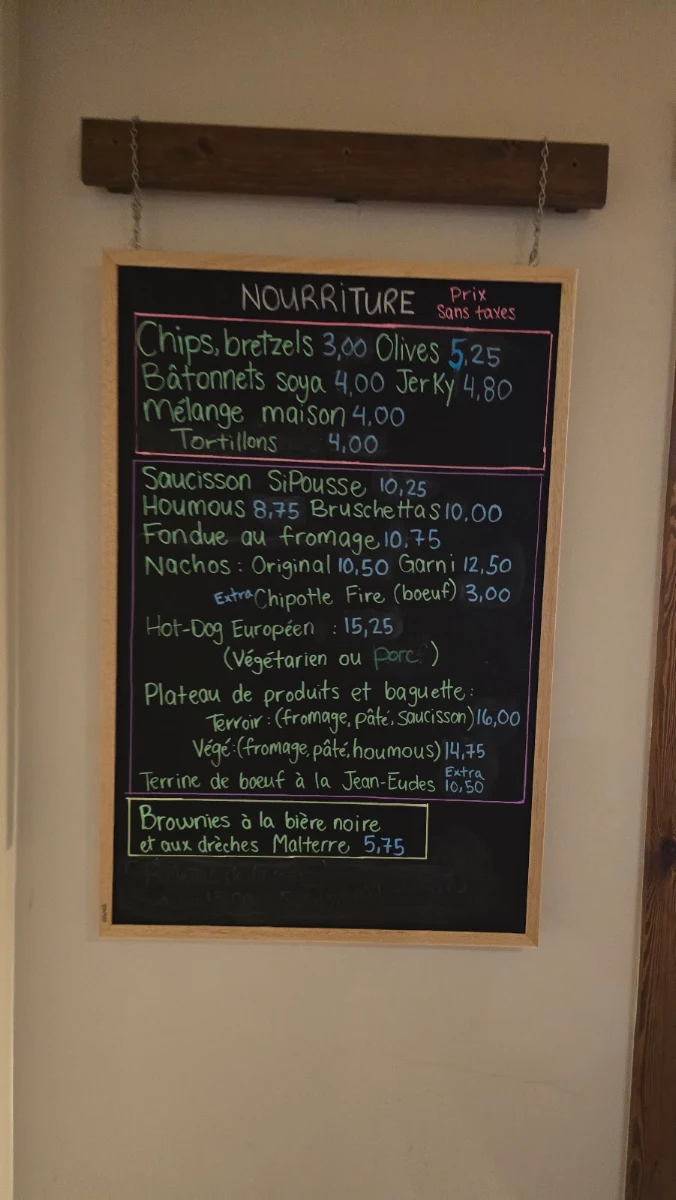 NOURRITURE Prix
sans taxes
Chips, bretzels 3,00 Olives 5,25
Bâtonnets soya 4,00 Jerky 4,80
Mélange maison 4,00
Tortillons 4,00
Saucisson SiPousse 10,25
Houmous 8,75 Bruschettas 10,00
Fondue au fromage 10,75
Nachos : Original 10,50 Garni 12,50
Extra Chipotle Fire (boeuf) 3,00
Hot-Dog Européen : 15,25
(Végétarien ou porc )
Plateau de produits et baguette :
Terroir : (fromage, pâté, saucisson) 16,00
Végé : (fromage, pâté, houmous) 14,75
Terrine de boeuf à la Jean-Eudes Extra
10,50
Brownies à la bière noire
et aux drèches Malterre 5,75